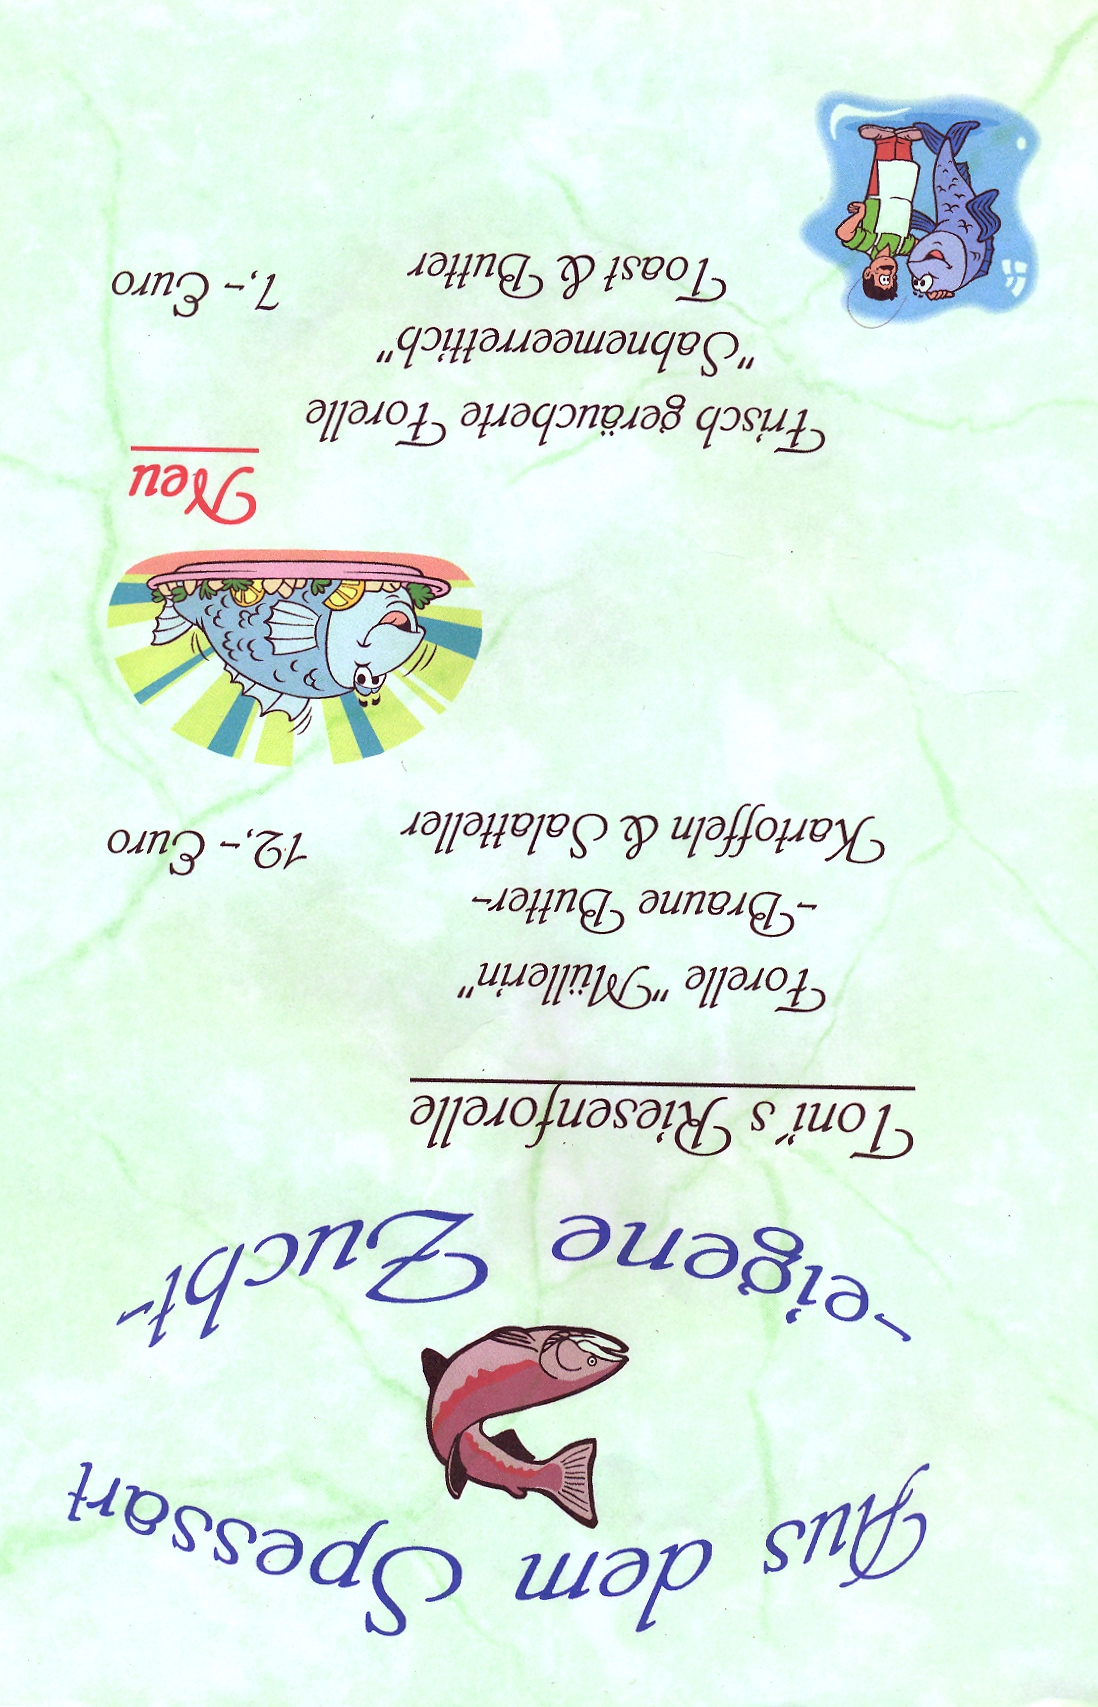 Aus dem Spessart
-eigene Zucht-
Toni's Riesenforelle
Forelle "Müllerin"
-Braune Butter-
Kartoffeln & Salatteller 12,- Euro
Neu
Frisch geräucherte Forelle
"Sahnemeerrettich"
Toast & Butter 7,- Euro